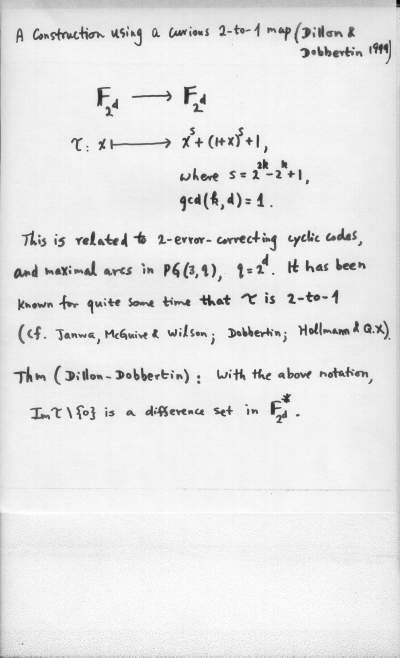 A Construction using a curious 2-to-1 map (Dillon &
Dobbertin 1999)
F_{2^d} ⟶ F_{2^d}
τ: x ⟼ x^s + (1+x)^s + 1,
where s = 2^{2k} - 2^k + 1,
gcd(k, d) = 1.
This is related to 2-error-correcting cyclic codes,
and maximal arcs in PG(3,q), q = 2^d. It has been
known for quite some time that τ is 2-to-1
(cf. Janwa, McGuire & Wilson; Dobbertin; Hollmann & Q.X.)
Thm (Dillon-Dobbertin): With the above notation,
Im τ \ {0} is a difference set in F_{2^d}^*.